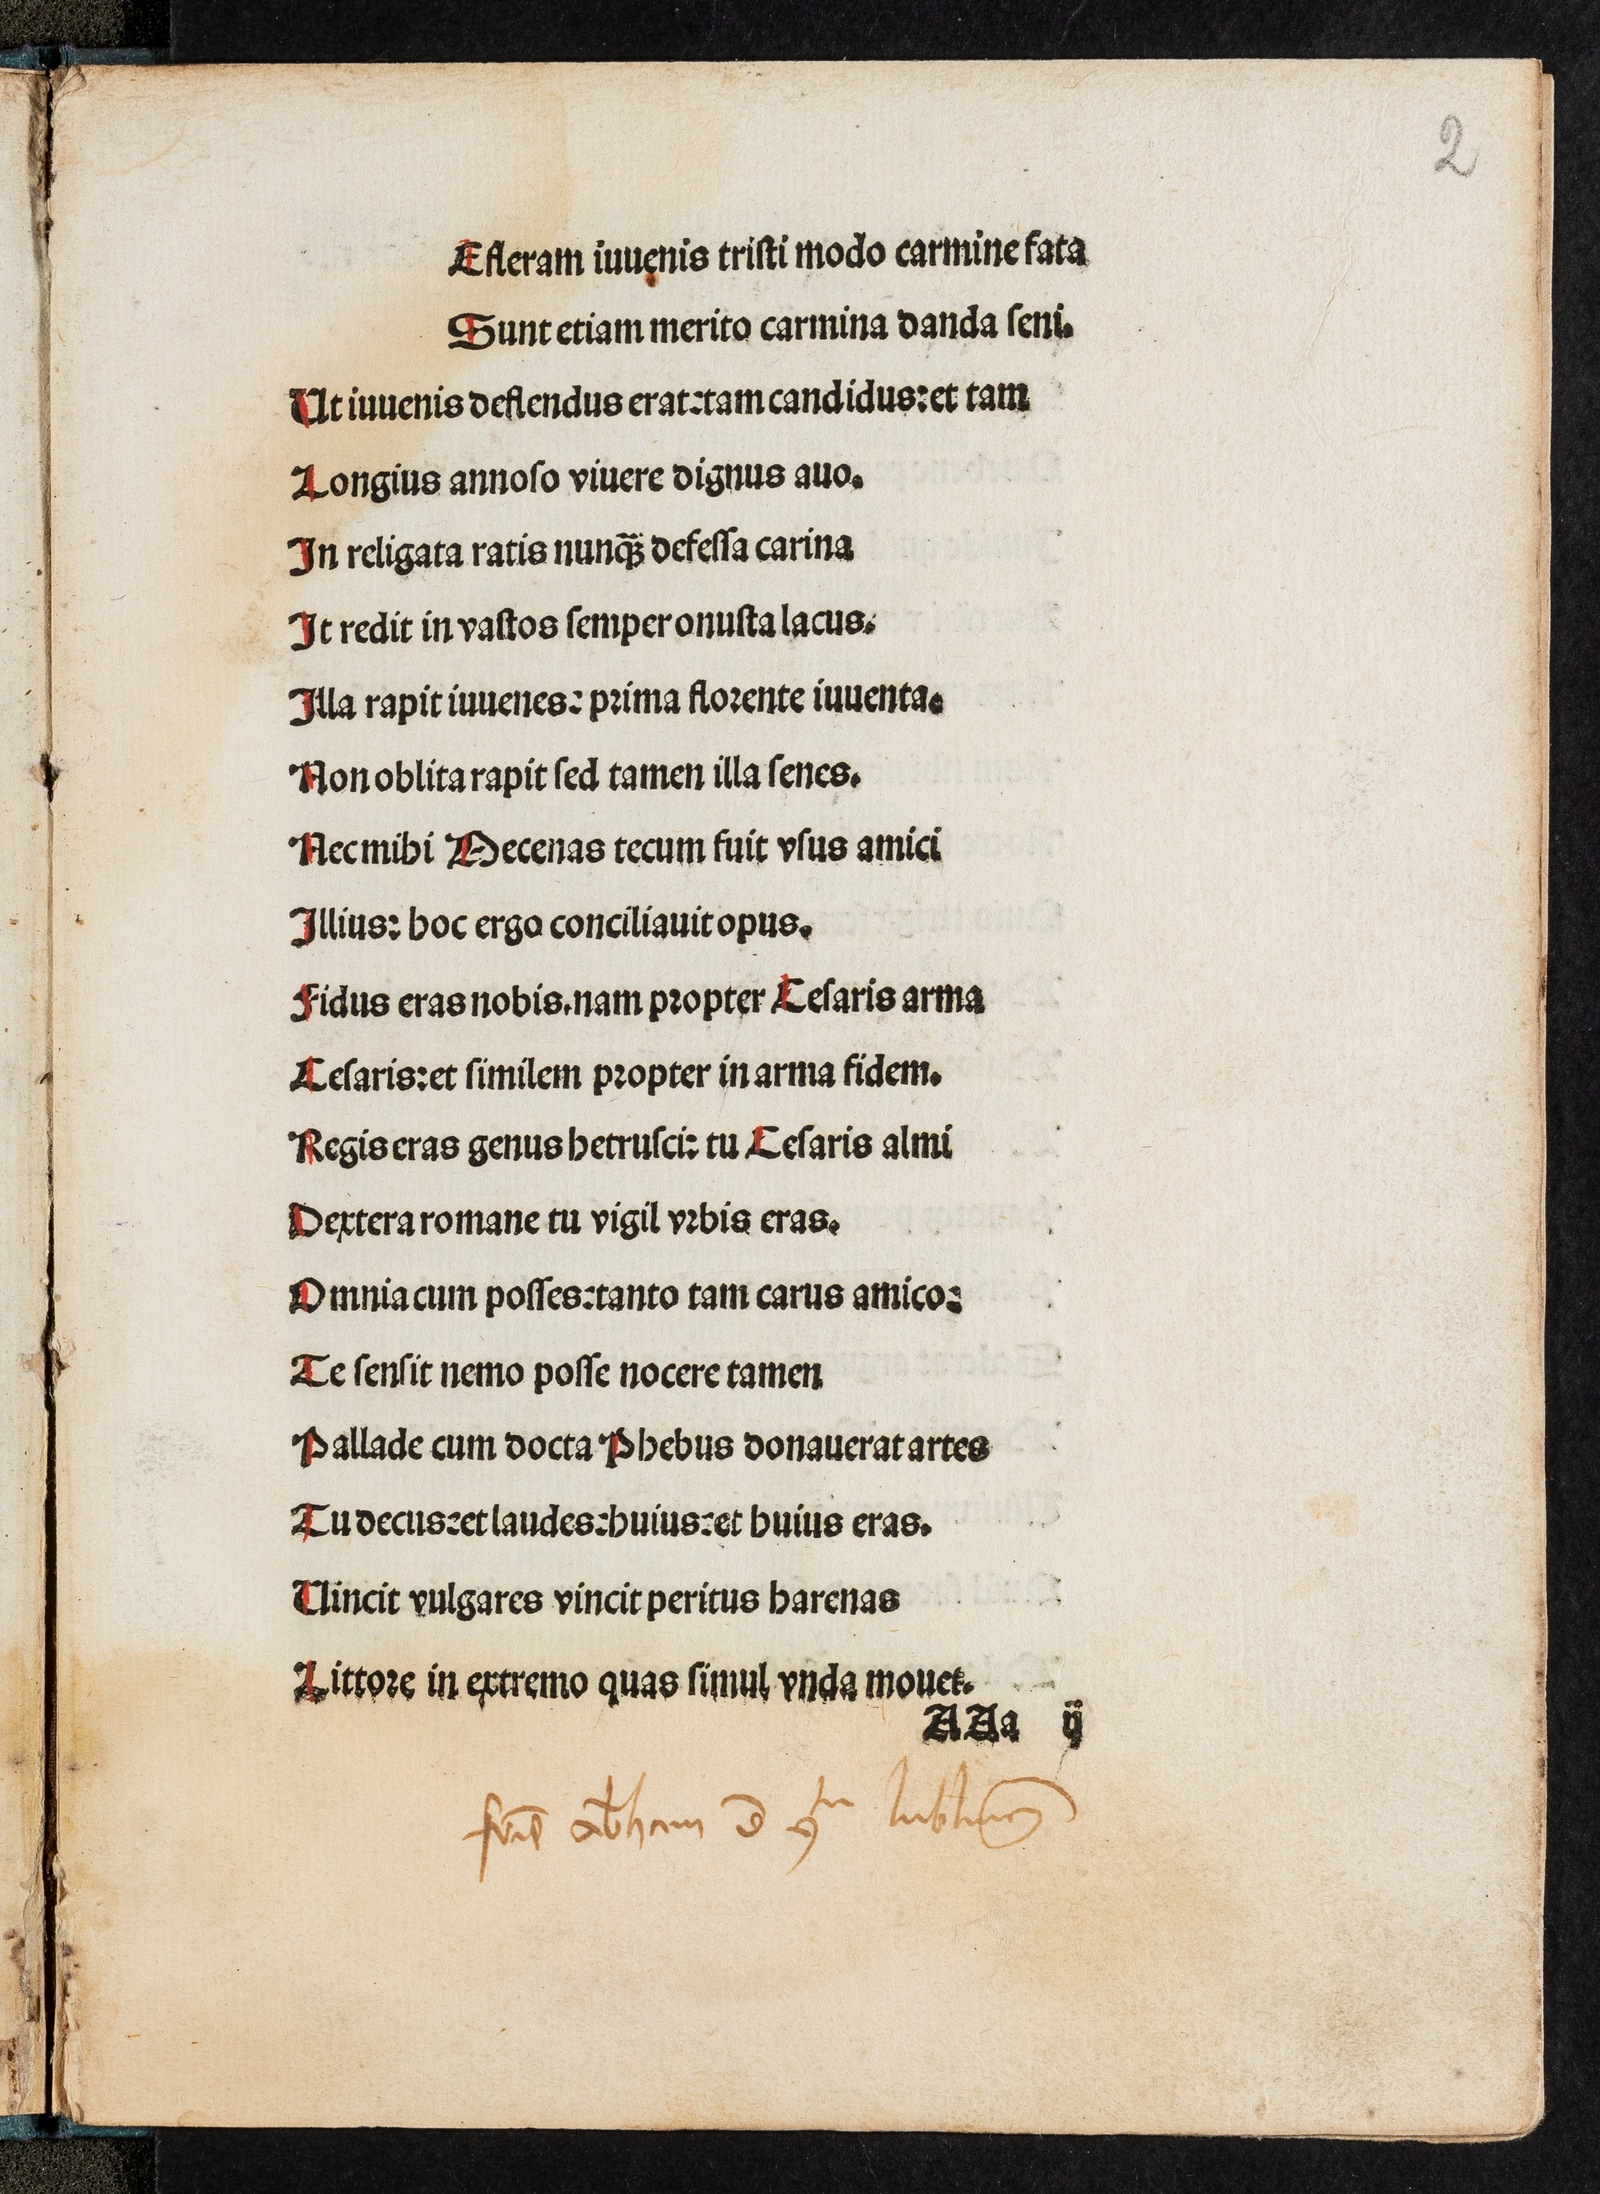 2
Efleram iuuenis tristi modo carmine fata
Sunt etiam merito carmina danda seni.
Ut iuuenis deflendus erat: tam candidus: et tam
Longius annoso viuere dignus auo.
In religata ratis nunqꝫ̃ defessa carina
It redit in vastos semper onusta lacus.
Illa rapit iuuenes: prima florente iuuenta.
Non oblita rapit sed tamen illa senes.
Nec mihi Mecenas tecum fuit vsus amici
Illius: hoc ergo conciliauit opus.
Fidus eras nobis. nam propter Cesaris arma
Cesaris: et similem propter in arma fidem.
Regis eras genus hetrusci: tu Cesaris almi
Dextera romane tu vigil vrbis eras.
Omnia cum posses: tanto tam carus amico:
Te sensit nemo posse nocere tamen
Pallade cum docta Phebus donauerat artes
Tu decus: et laudes: huius: et huius eras.
Uincit vulgares vincit peritus harenas
Littore in extremo quas simul vnda mouet.
AAa ij